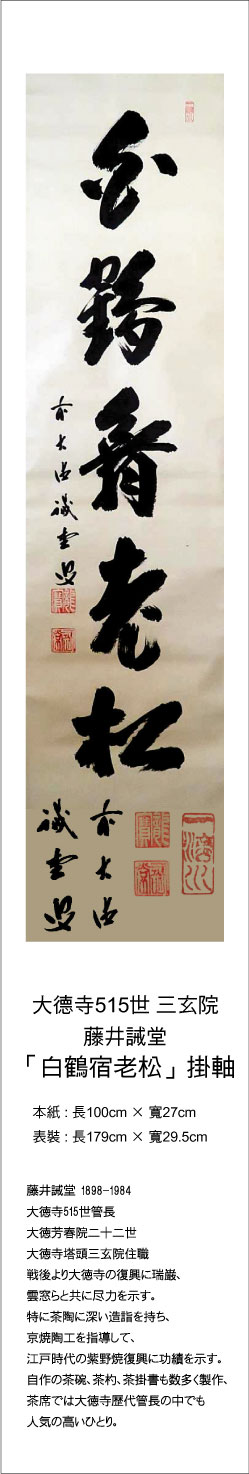 白鶴宿老松
前大徳誡堂
前大徳
誡堂
大德寺515世 三玄院
藤井誡堂
「白鶴宿老松」掛軸
本紙 : 長100cm × 寬27cm
表裝 : 長179cm × 寬29.5cm
藤井誡堂 1898-1984
大徳寺515世管長
大徳芳春院二十二世
大徳寺塔頭三玄院住職
戦後より大徳寺の復興に瑞巌、
雲窓らと共に尽力を示す。
特に茶陶に深い造詣を持ち、
京焼陶工を指導して、
江戸時代の紫野焼復興に功績を示す。
自作の茶碗、茶杓、茶掛書も数多く製作、
茶席では大徳寺歴代管長の中でも
人気の高いひとり。